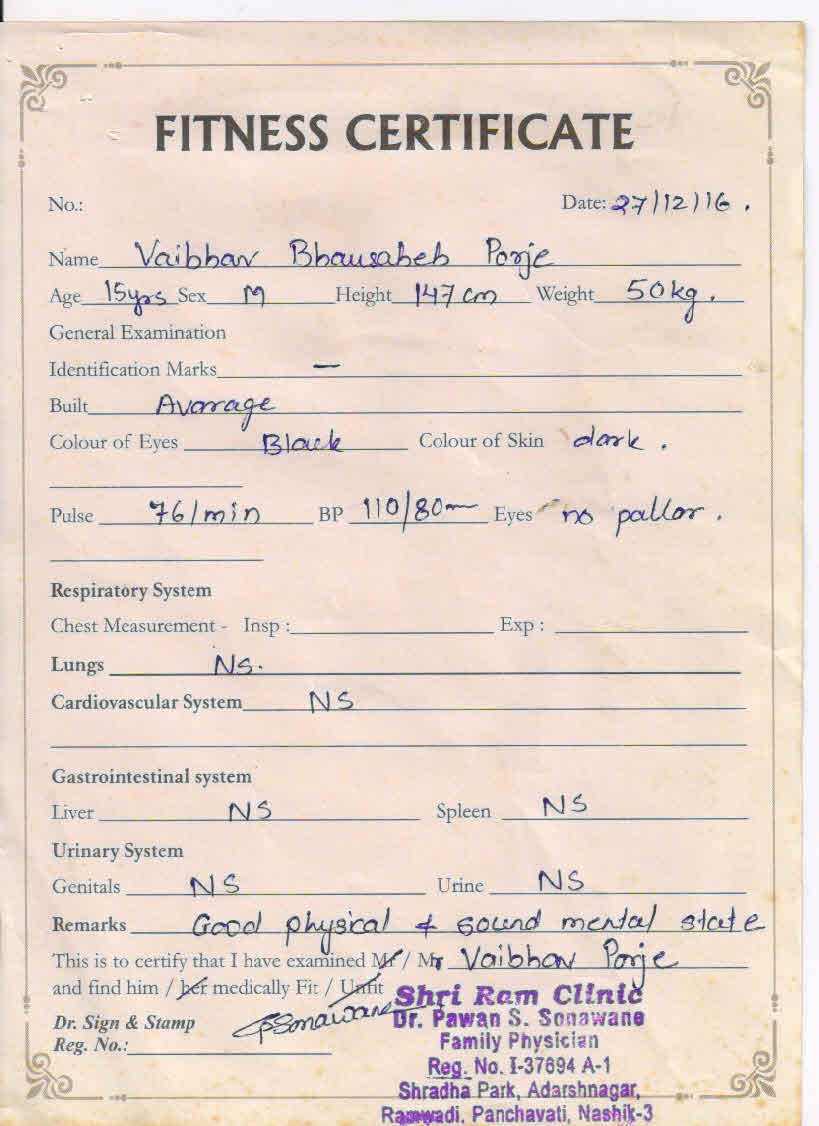 FITNESS CERTIFICATE
No.: Date: 27/12/16.
Name Vaibhav Bhausaheb Porje
Age 15yrs Sex M Height 147 cm Weight 50kg.
General Examination
Identification Marks —
Built Avarage
Colour of Eyes Black Colour of Skin dark.
Pulse 76/min BP 110/80 Eyes no pallor.
Respiratory System
Chest Measurement - Insp : Exp :
Lungs NS.
Cardiovascular System NS
Gastrointestinal system
Liver NS Spleen NS
Urinary System
Genitals NS Urine NS
Remarks Good physical & sound mental state
This is to certify that I have examined Mr / Mr Vaibhav Porje
and find him / her medically Fit / Unfit
Dr. Sign & Stamp PSonawane
Reg. No.:
Shri Ram Clinic
Dr. Pawan S. Sonawane
Family Physician
Reg. No. I-37694 A-1
Shradha Park, Adarshnagar,
Ramwadi, Panchavati, Nashik-3